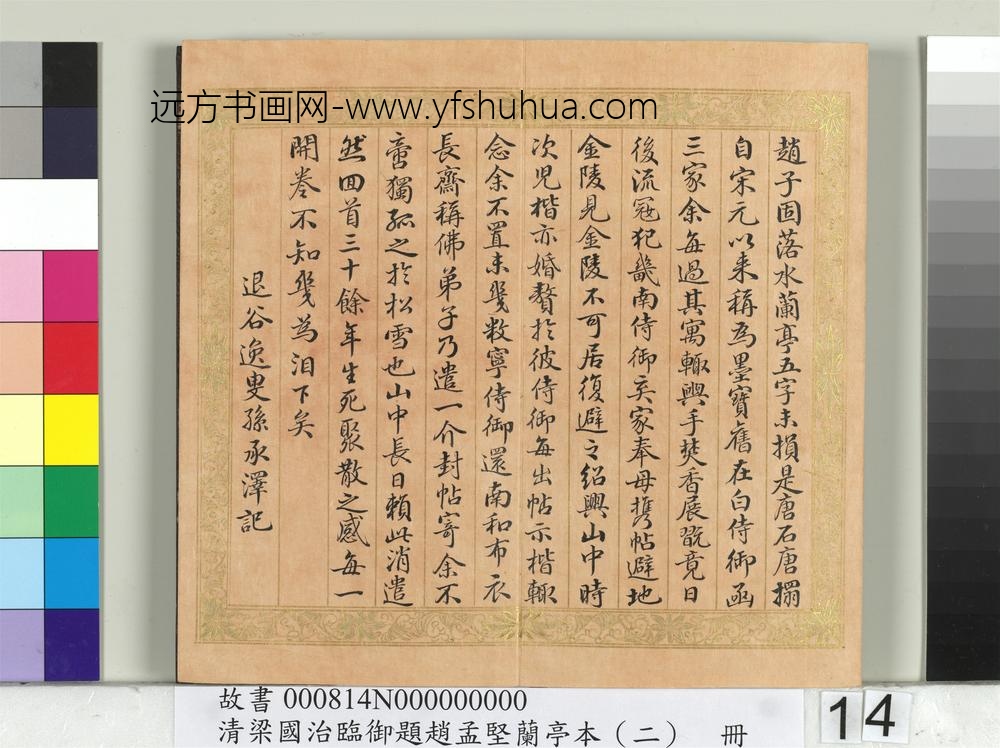 远方书画网-www.yfshuhua.com
趙子固落水蘭亭五字未損是唐石唐搨
自宋元以来稱為墨寶舊在白侍御函
三家余每過其寓輙與手焚香展翫竟日
後流冦犯畿南侍御弃家奉母携帖避地
金陵見金陵不可居復避之紹興山中時
次児楷亦婚贅於彼侍御每出帖示楷輙
念余不置未幾敉寧侍御還南和布衣
長齋稱佛弟子乃遣一介封帖寄余不
啻獨孤之於松雪也山中長日賴此消遣
然回首三十餘年生死聚散之感每一
開卷不知幾為泪下矣
退谷逸叟孫承澤記
故書 000814N000000000
清梁國治臨御題趙孟堅蘭亭本（二） 冊
14